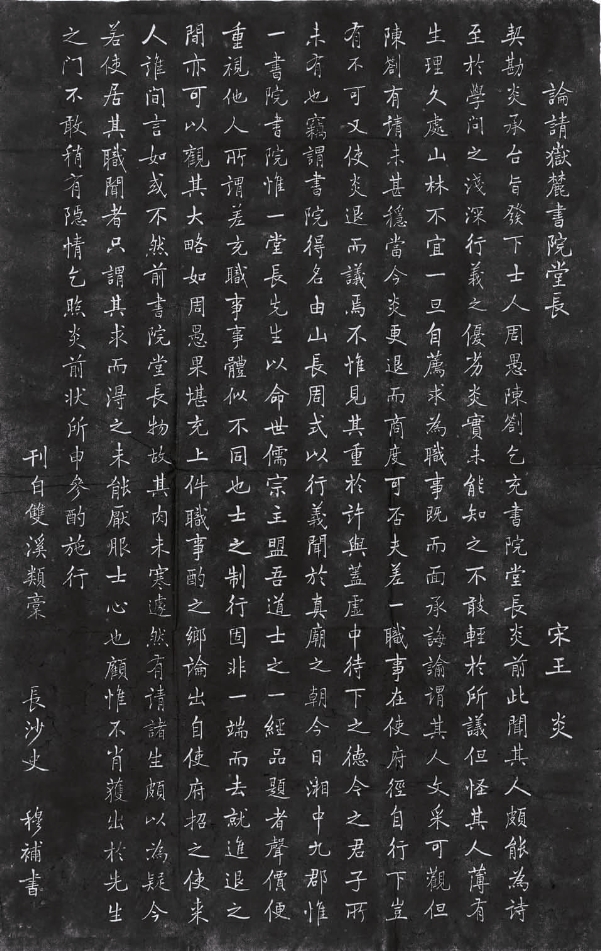 論請嶽麓書院堂長
宋王炎
契勘炎承台旨發下士人周愚陳劄乞充書院堂長炎前此聞其人頗能為詩
至於學問之淺深行義之優劣炎實未能知之不敢輕於所議但怪其人薄有
生理久處山林不宜一旦自薦求為職事既而面承誨諭謂其人文采可觀但
陳劄有請未甚穩當今炎更退而商度可否夫差一職事在使府徑自行下豈
有不可又使炎退而議焉不惟見其重於許與蓋虛中待下之德今之君子所
未有也竊謂書院得名由山長周式以行義聞於真廟之朝今日湘中九郡惟
一書院書院惟一堂長先生以命世儒宗主盟吾道士之一經品題者聲價便
重視他人所謂差充職事事體似不同也士之制行固非一端而去就進退之
間亦可以觀其大略如周愚果堪充上件職事酌之鄉論出自使府招之使来
人誰間言如或不然前書院堂長物故其肉未寒遽然有請諸生頗以為疑今
若使居其職聞者只謂其求而得之未能厭服士心也顧惟不肖獲出於先生
之门不敢稍有隱情乞照炎前状所申參酌施行
刊自雙溪類稾
長沙史穆補書